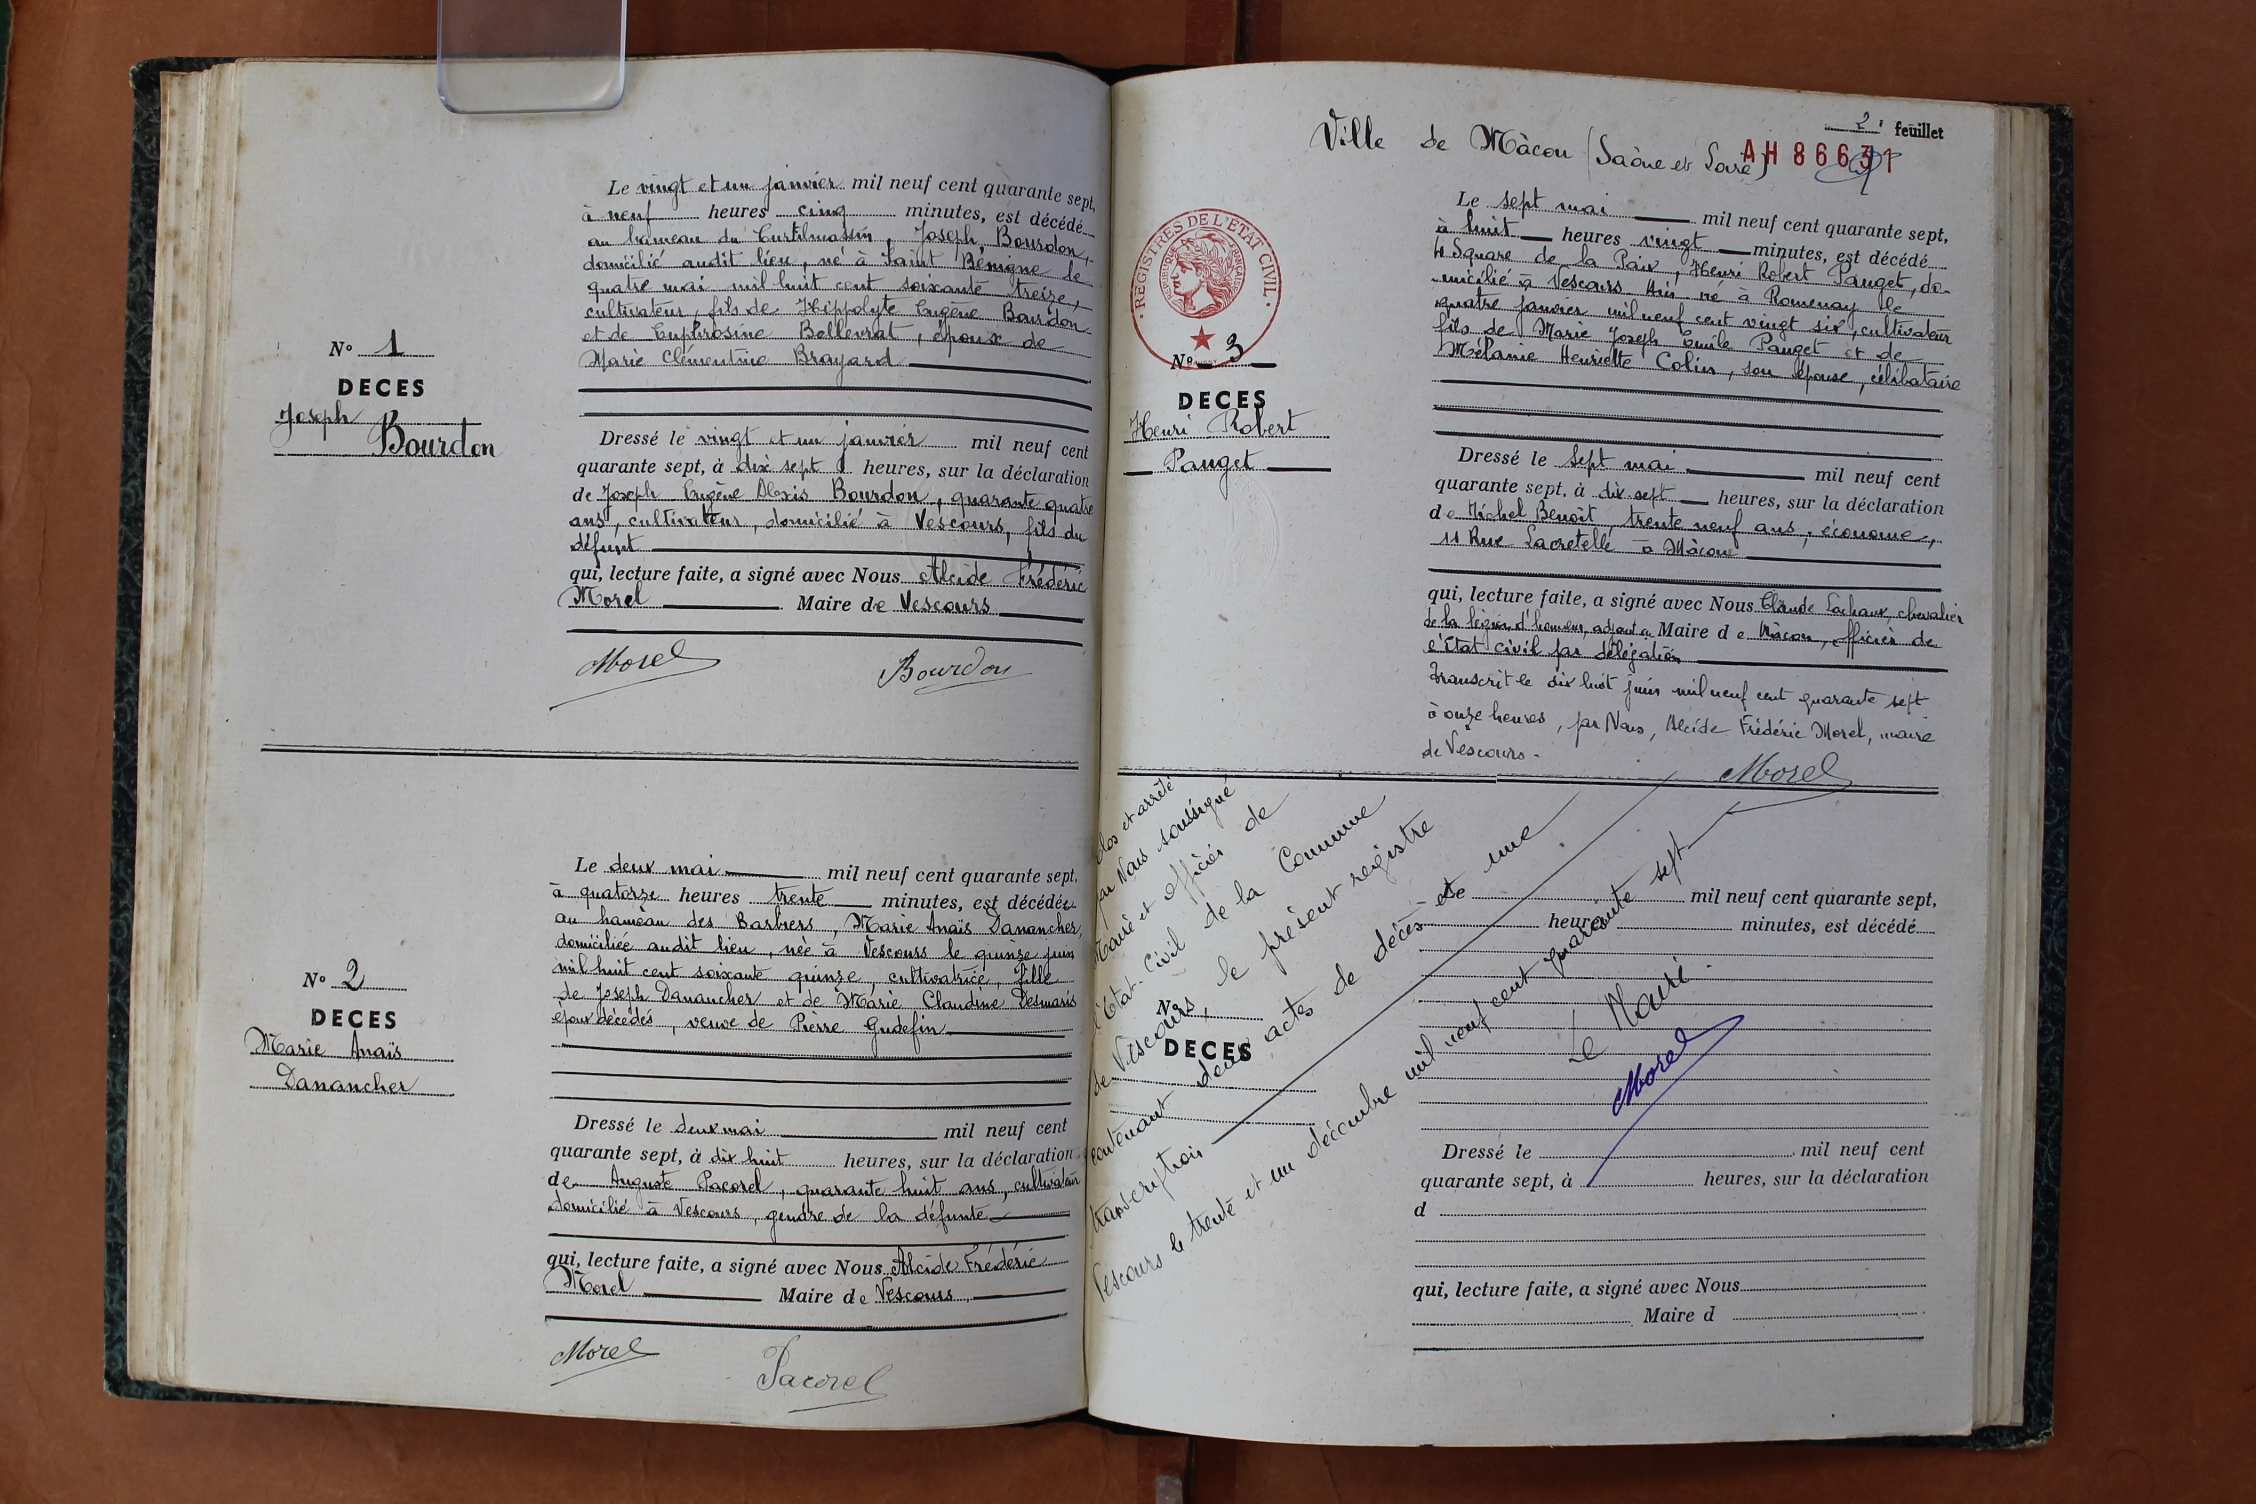 Le vingt et un janvier mil neuf cent quarante sept,
à neuf heures cinq minutes, est décédé
au hameau du Curtilmassin, Joseph Bourdon,
domicilié audit lieu, né à Saint Bénigne le
quatre mai mil huit cent soixante treize,
cultivateur, fils de Hippolyte Eugène Bourdon
et de Euphrosine Bellevrat, époux de
Marie Clémentine Brayard
N° 1
DECES
Joseph
Bourdon
Dressé le vingt et un janvier mil neuf cent
quarante sept, à dix sept heures, sur la déclaration
de Joseph Eugène Alexis Bourdon, quarante quatre
ans, cultivateur, domicilié à Vescours, fils du
défunt
qui, lecture faite, a signé avec Nous Alcide Frédéric
Morel Maire de Vescours
Morel Bourdon
Le deux mai mil neuf cent quarante sept,
à quatorze heures trente minutes, est décédée
au hameau des Barbiers, Marie Anaïs Danancher,
domiciliée audit lieu, née à Vescours le quinze juin
mil huit cent soixante quinze, cultivatrice, fille
de Joseph Danancher et de Marie Claudine Desmaris
époux décédés, veuve de Pierre Gudefin
N° 2
DECES
Marie Anaïs
Danancher
Dressé le deux mai mil neuf cent
quarante sept, à dix huit heures, sur la déclaration
de Auguste Pacorel, quarante huit ans, cultivateur
domicilié à Vescours, gendre de la défunte
qui, lecture faite, a signé avec Nous Alcide Frédéric
Morel Maire de Vescours
Morel Pacorel
2e feuillet
Ville de Mâcon (Saône et Loire) AH 86631
REGISTRES DE L'ETAT CIVIL
REPUBLIQUE FRANÇAISE
Le sept mai mil neuf cent quarante sept,
à huit heures vingt minutes, est décédé
4 Square de la Paix, Henri Robert Pauget, do-
micilié à Vescours Ain né à Romenay le
quatre janvier mil neuf cent vingt six, cultivateur
fils de Marie Joseph Emile Pauget et de
Mélanie Henriette Colin, son épouse, célibataire
N° 3
DECES
Henri Robert
Pauget
Dressé le sept mai mil neuf cent
quarante sept, à dix sept heures, sur la déclaration
de Michel Benoît, trente neuf ans, économe,
11 Rue Lacretelle à Mâcon
qui, lecture faite, a signé avec Nous Claude Lachaux, chevalier
de la légion d'honneur, adjoint au Maire de Mâcon, officier de
l'Etat civil par délégation
Transcrit le dix huit juin mil neuf cent quarante sept
à onze heures, par Nous, Alcide Frédéric Morel, maire
de Vescours.
Morel
Clos et arrêté
par Nous soussigné
Maire et officier de
l'Etat-Civil de la Commune
de Vescours, le présent registre
contenant deux actes de décès et une
transcription
Vescours le trente et un décembre mil neuf cent quarante sept
Le Maire.
Morel
Le mil neuf cent quarante sept,
heures minutes, est décédé
N°
DECES
Dressé le mil neuf cent
quarante sept, à heures, sur la déclaration
d
qui, lecture faite, a signé avec Nous
Maire d